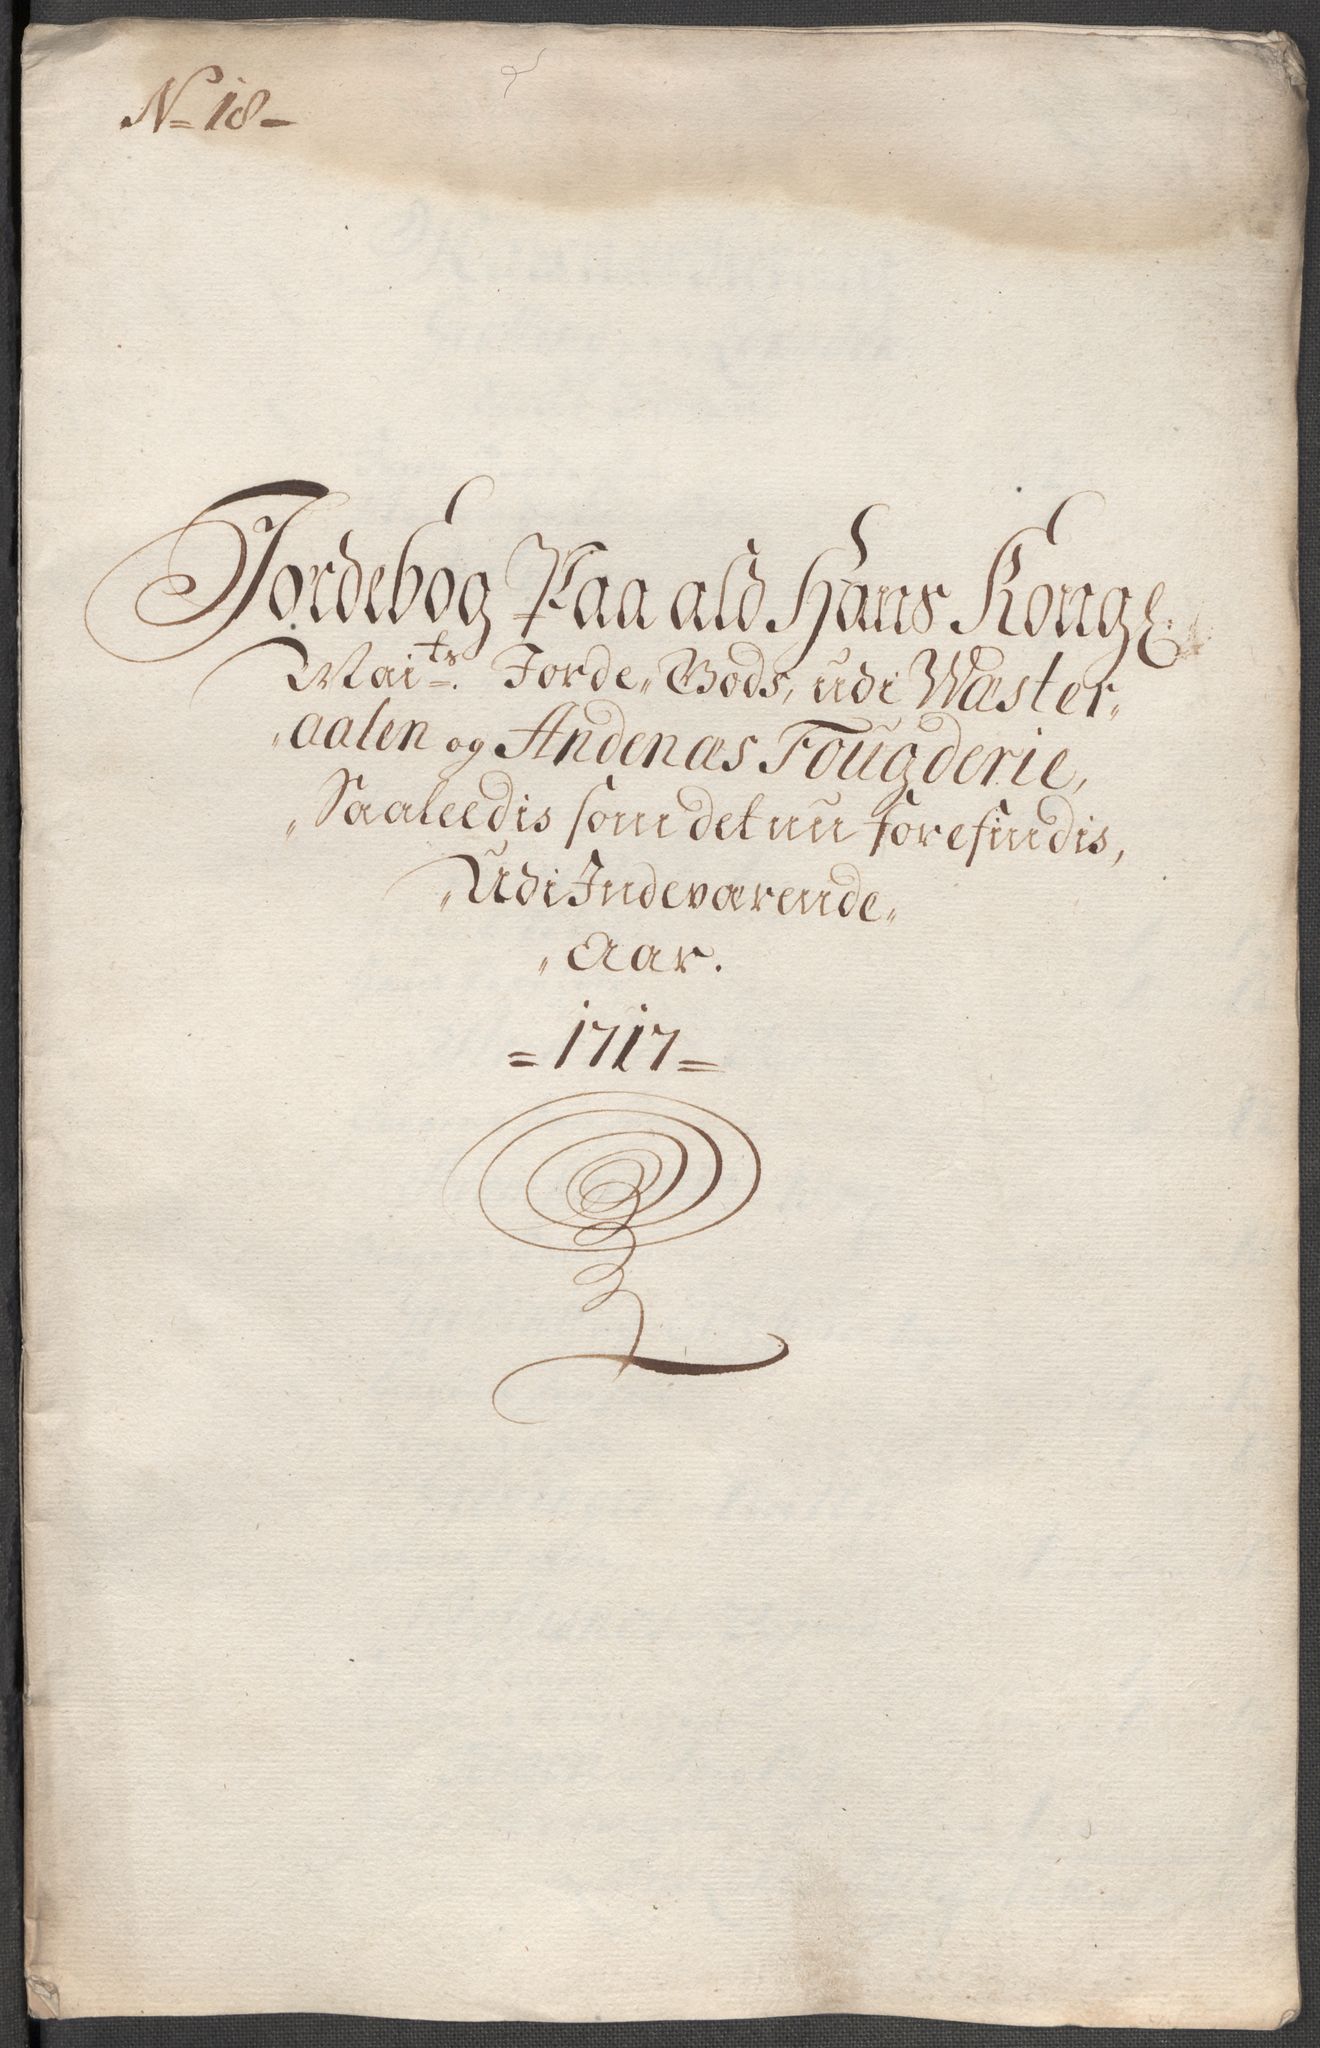 N= 18-
Jordebog Paa ald Hans Kongl:
Mai:ts Jorde„ Gods, udi Wæster„
„aalen og Andenæs Fougderie,
„Saaleedis som det nu forefindis,
„Udi Indeværende„
„Aar.
=1717=